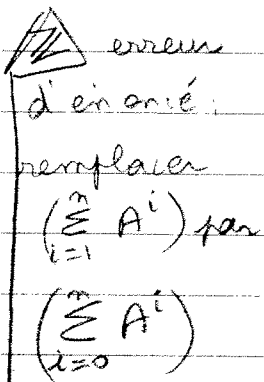 erreur
d'énoncé :
remplacer
(∑_{i=1}^{n} A^i) par
(∑_{i=0}^{n} A^i)